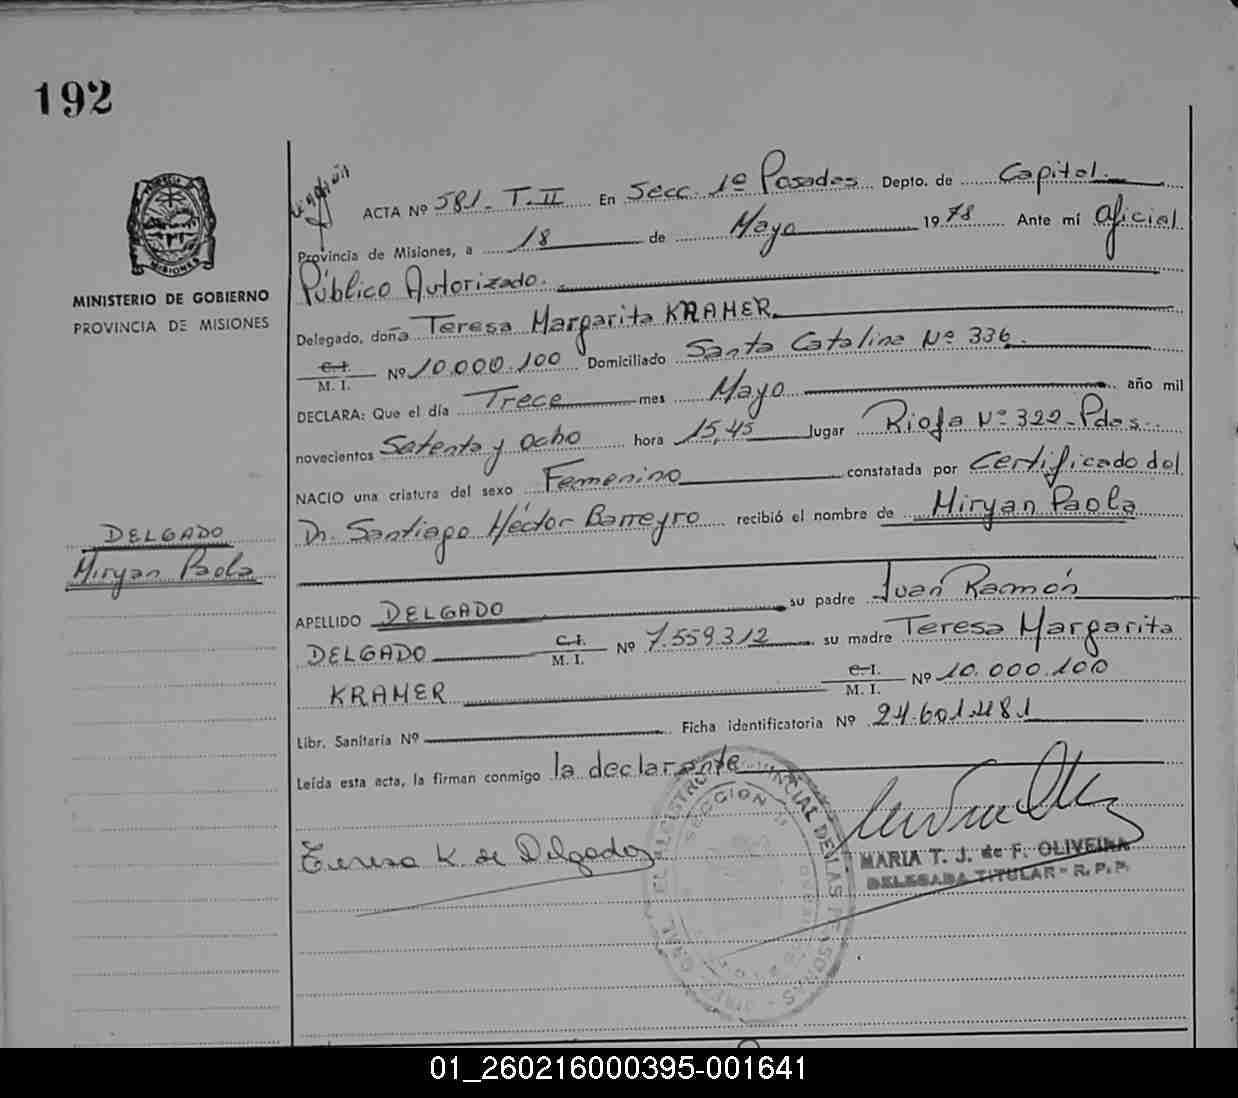 192
MINISTERIO DE GOBIERNO
PROVINCIA DE MISIONES
ACTA Nº 581 - T. II En Secc. 1º Posadas Depto. de Capital.
Provincia de Misiones, a 18 de Mayo 1978 Ante mí Oficial
Público Autorizado.
Delegado, doña Teresa Margarita KRAMER
C.I. M. I. Nº 10.000.100 Domiciliado Santa Catalina Nº 336.
DECLARA: Que el día Trece mes Mayo año mil
novecientos Setenta y Ocho hora 15,45 lugar Rioja Nº 322 - Pdas.
NACIO una criatura del sexo Femenino constatada por Certificado del
Dr. Santiago Héctor Barreyro recibió el nombre de Miryan Paola
DELGADO
Miryan Paola
APELLIDO DELGADO su padre Juan Ramón
DELGADO C.I. M. I. Nº 7.559.312 su madre Teresa Margarita
KRAMER C.I. M. I. Nº 10.000.100
Libr. Sanitaria Nº Ficha identificatoria Nº 24.601.481
Leída esta acta, la firman conmigo la declarante
Teresa K. de Delgado
MARIA T. J. de F. OLIVEIRA
DELEGADA TITULAR - R. P. P.
01_260216000395-001641